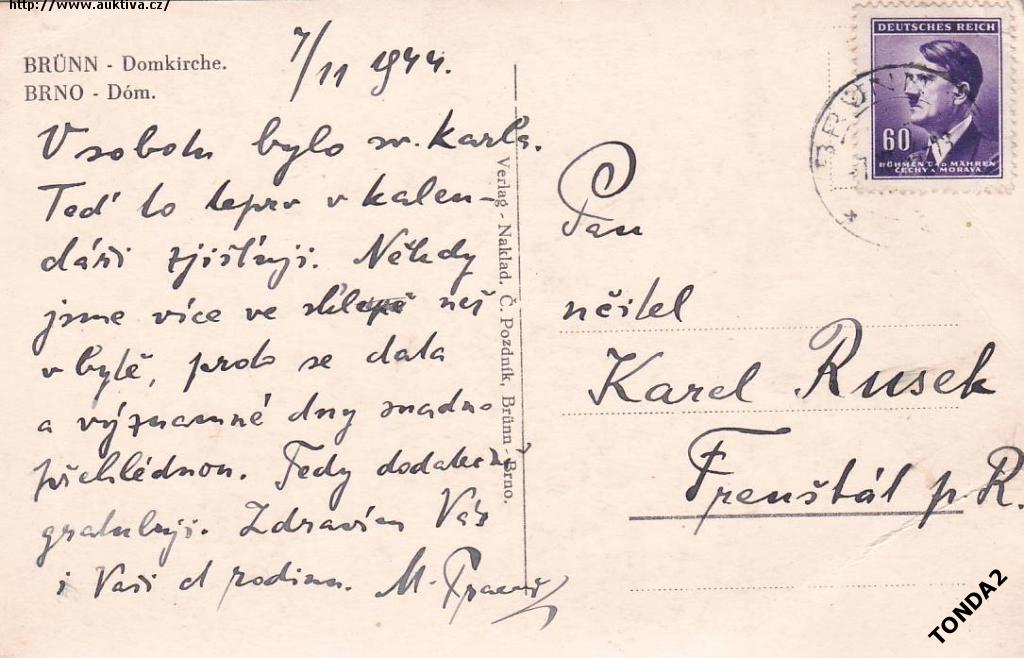 http://www.auktiva.cz/
BRÜNN - Domkirche.
BRNO - Dóm.
7/11 1944.
V sobotu bylo sv. Karla.
Teď to teprv v kalen-
dáři zjišťuji. Někdy
jsme více ve sklepě než
v bytě, proto se data
a významné dny snadno
přehlédnou. Tedy dodatečně
gratuluji. Zdravím Vás
i Vaši ct rodinu. M.
Verlag - Naklad. Č. Pozdník, Brünn - Brno.
DEUTSCHES REICH
60
BÖHMEN U MÄHREN
ČECHY A MORAVA
BRÜNN
Pan
učitel
Karel Rusek
Frenštát p. R.
TONDA2